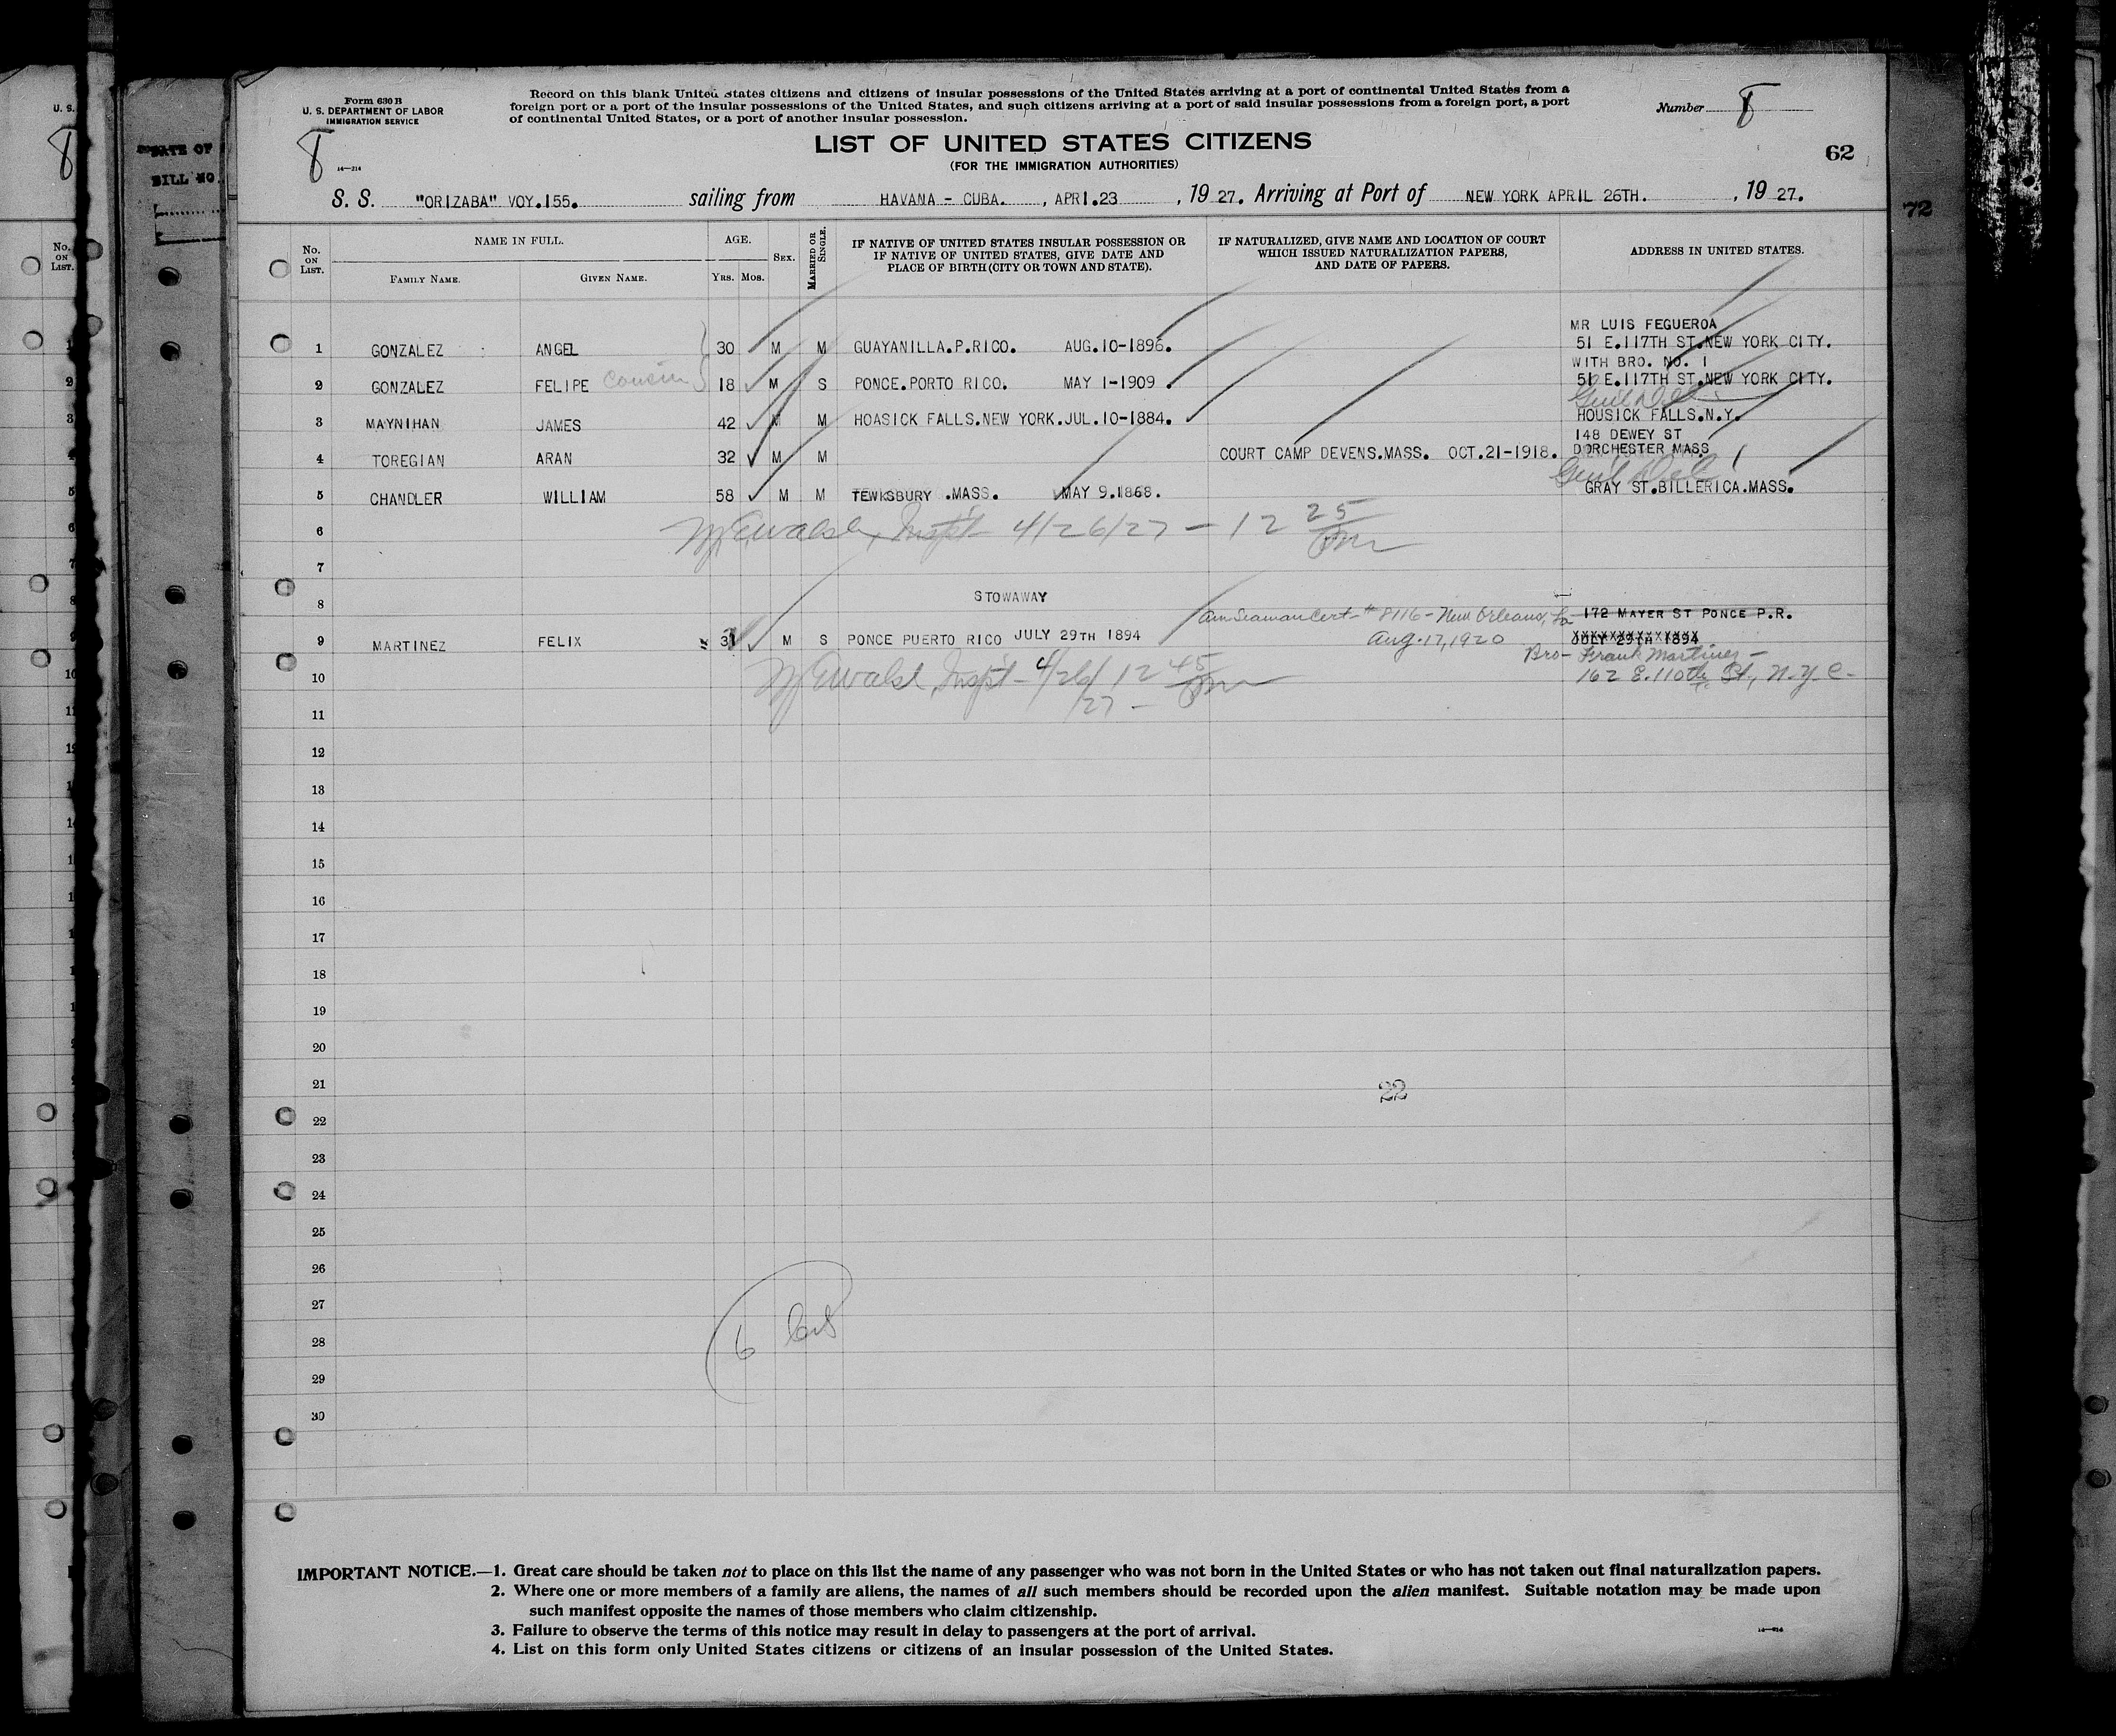 Form 630 B
U. S. DEPARTMENT OF LABOR
IMMIGRATION SERVICE
Record on this blank United States citizens and citizens of insular possessions of the United States arriving at a port of continental United States from a
foreign port or a port of the insular possessions of the United States, and such citizens arriving at a port of said insular possessions from a foreign port, a port
of continental United States, or a port of another insular possession.
Number 8
8
14—214
LIST OF UNITED STATES CITIZENS
(FOR THE IMMIGRATION AUTHORITIES)
62
S. S. "ORIZABA" VOY.155. sailing from HAVANA - CUBA. , APRI.23 , 19 27. Arriving at Port of NEW YORK APRIL 26TH. , 19 27.
72
No. ON LIST. NAME IN FULL. FAMILY NAME. GIVEN NAME. AGE. YRS. MOS. SEX. MARRIED OR SINGLE.
IF NATIVE OF UNITED STATES INSULAR POSSESSION OR
IF NATIVE OF UNITED STATES, GIVE DATE AND
PLACE OF BIRTH (CITY OR TOWN AND STATE).
IF NATURALIZED, GIVE NAME AND LOCATION OF COURT
WHICH ISSUED NATURALIZATION PAPERS,
AND DATE OF PAPERS.
ADDRESS IN UNITED STATES.
MR LUIS FEGUEROA
1 GONZALEZ ANGEL 30 M M GUAYANILLA.P.RICO. AUG.10-1896. 51 E.117TH ST.NEW YORK CITY.
WITH BRO. NO. 1
2 GONZALEZ FELIPE cousin 18 M S PONCE.PORTO RICO. MAY 1-1909 51 E.117TH ST.NEW YORK CITY.
3 MAYNIHAN JAMES 42 M M HOASICK FALLS.NEW YORK.JUL.10-1884. HOUSICK FALLS.N.Y.
148 DEWEY ST
4 TOREGIAN ARAN 32 M M COURT CAMP DEVENS.MASS. OCT.21-1918. DORCHESTER MASS
5 CHANDLER WILLIAM 58 M M TEWKSBURY .MASS. MAY 9.1868. GRAY ST.BILLERICA.MASS.
6 Walsh, Inspt 4/26/27 - 12 25 pm
7
8 STOWAWAY
Am Seaman Cert - # 8116 - New Orleans, La 172 MAYER ST PONCE P.R.
9 MARTINEZ FELIX 31 M S PONCE PUERTO RICO JULY 29TH 1894 Aug. 17, 1920 JULY 29TH 1894
Bro - Frank Martinez -
10 Walsh, Inspt - 4/26/27 - 12 45 pm 162 E. 110th St., N.Y.C.
11
12
13
14
15
16
17
18
19
20
21
22
22
23
24
25
26
27
28
6
29
30
IMPORTANT NOTICE.—1. Great care should be taken not to place on this list the name of any passenger who was not born in the United States or who has not taken out final naturalization papers.
2. Where one or more members of a family are aliens, the names of all such members should be recorded upon the alien manifest. Suitable notation may be made upon
such manifest opposite the names of those members who claim citizenship.
3. Failure to observe the terms of this notice may result in delay to passengers at the port of arrival.
4. List on this form only United States citizens or citizens of an insular possession of the United States.